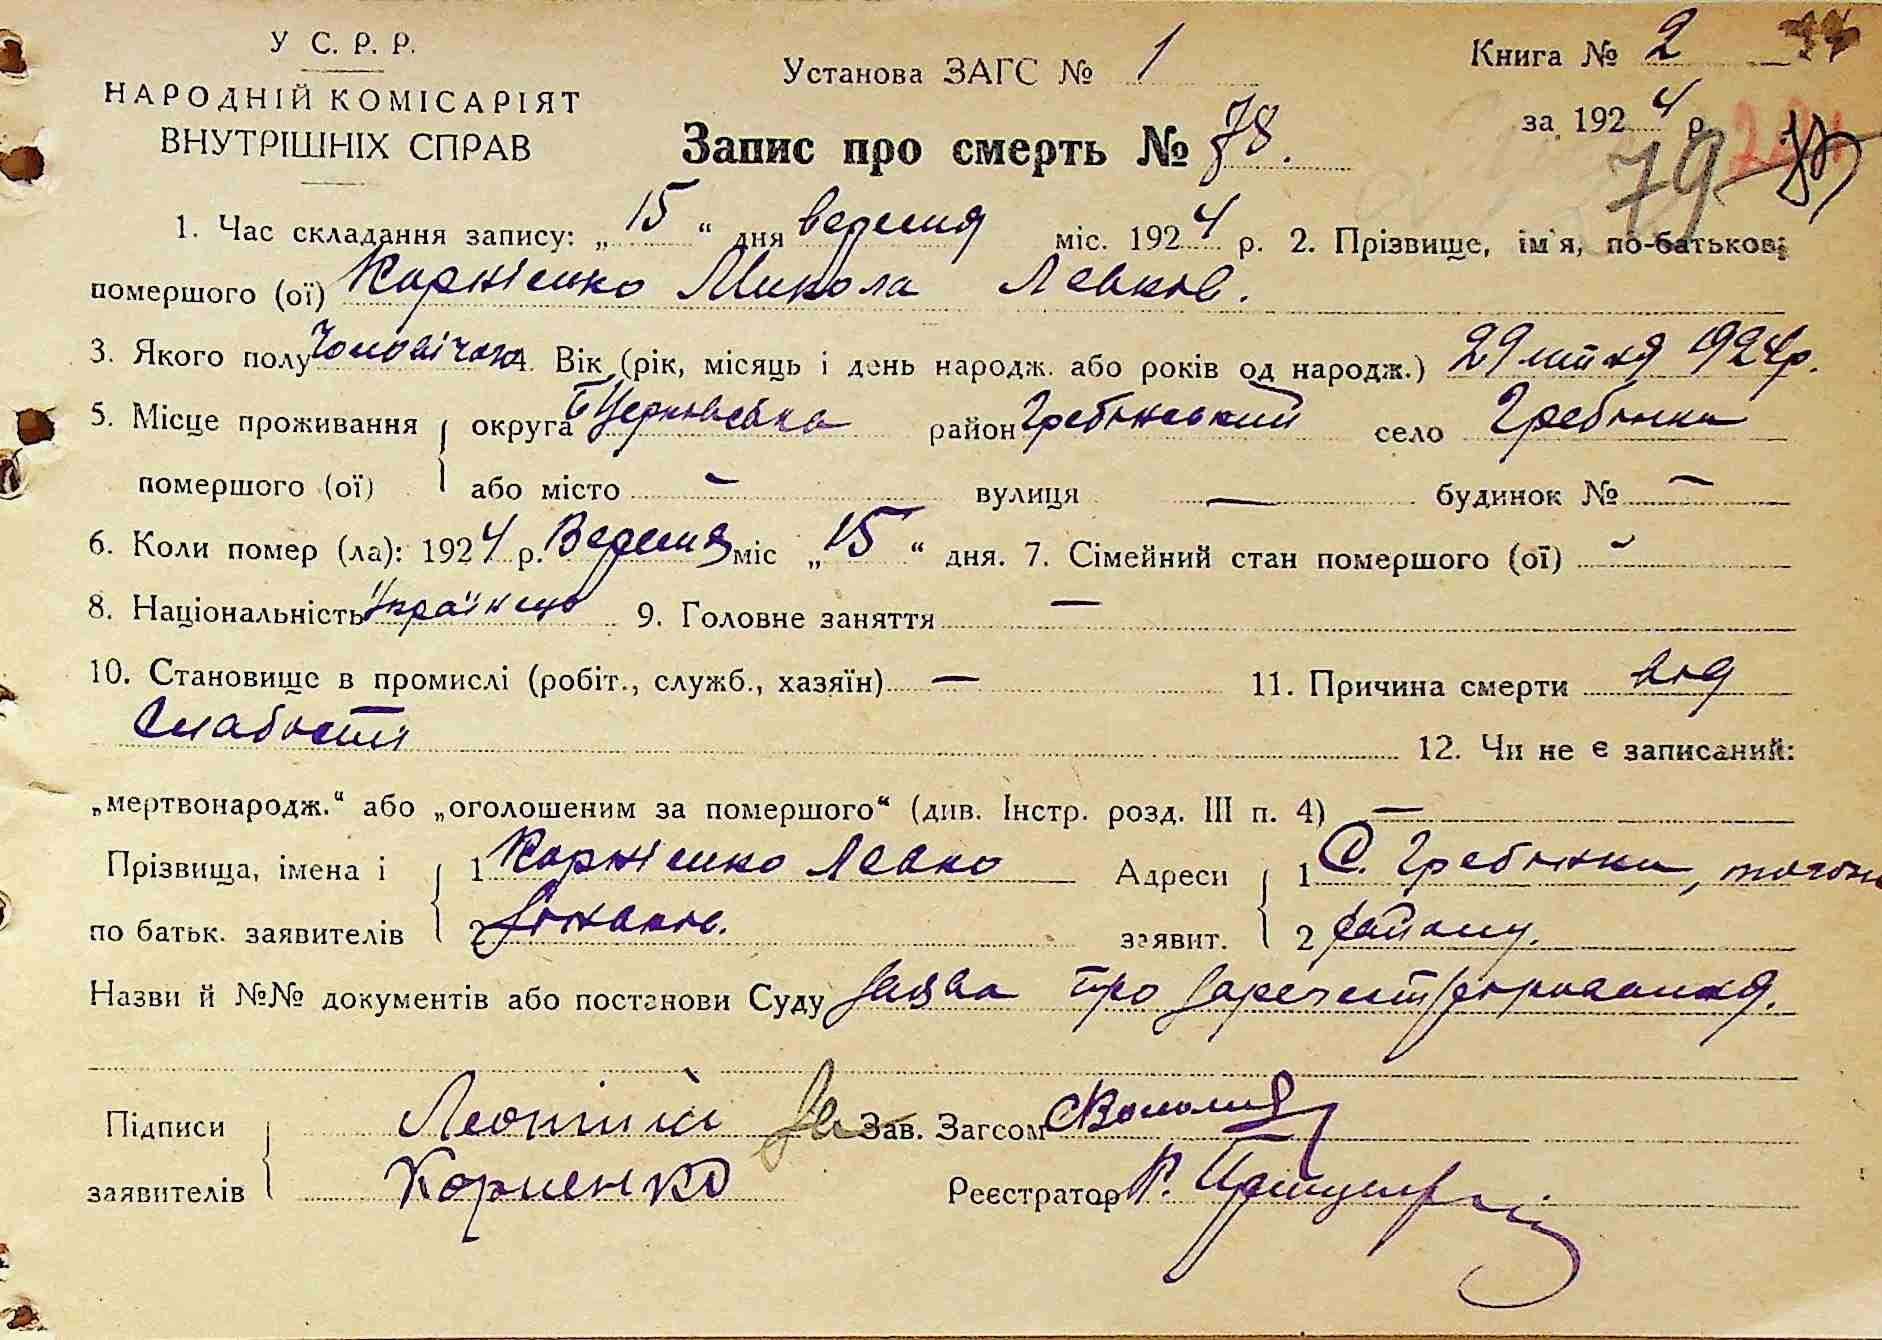 У С. Р. Р.
НАРОДНІЙ КОМІСАРІЯТ
ВНУТРІШНІХ СПРАВ
Установа ЗАГС № 1
Книга № 2
за 1924 р.
79
Запис про смерть № 78.
1. Час складання запису: „15“ дня вересня міс. 1924 р. 2. Прізвище, ім'я, по-батькові
помершого (ої) Корнієнко Микола Левков.
3. Якого полу Чоловічого 4. Вік (рік, місяць і день народж. або років од народж.) 29 липня 1924р.
5. Місце проживання округа Б Церковська район Гребінський село Гребінка
помершого (ої) або місто – вулиця – будинок № –
6. Коли помер (ла): 1924 р. Вересня міс „15“ дня. 7. Сімейний стан помершого (ої) -
8. Національність Українець 9. Головне заняття –
10. Становище в промислі (робіт., служб., хазяїн) – 11. Причина смерти від
слабости 12. Чи не є записаний:
„мертвонародж.“ або „оголошеним за помершого“ (див. Інстр. розд. III п. 4) –
Прізвища, імена і 1 Корнієнко Левко Адреси 1 С. Гребінка,
по батьк. заявителів 2 заявит. 2 району.
Назви й №№ документів або постанови Суду Заява про
Підписи Леонтій За Зав. Загсом
заявителів Корненко Реєстратор